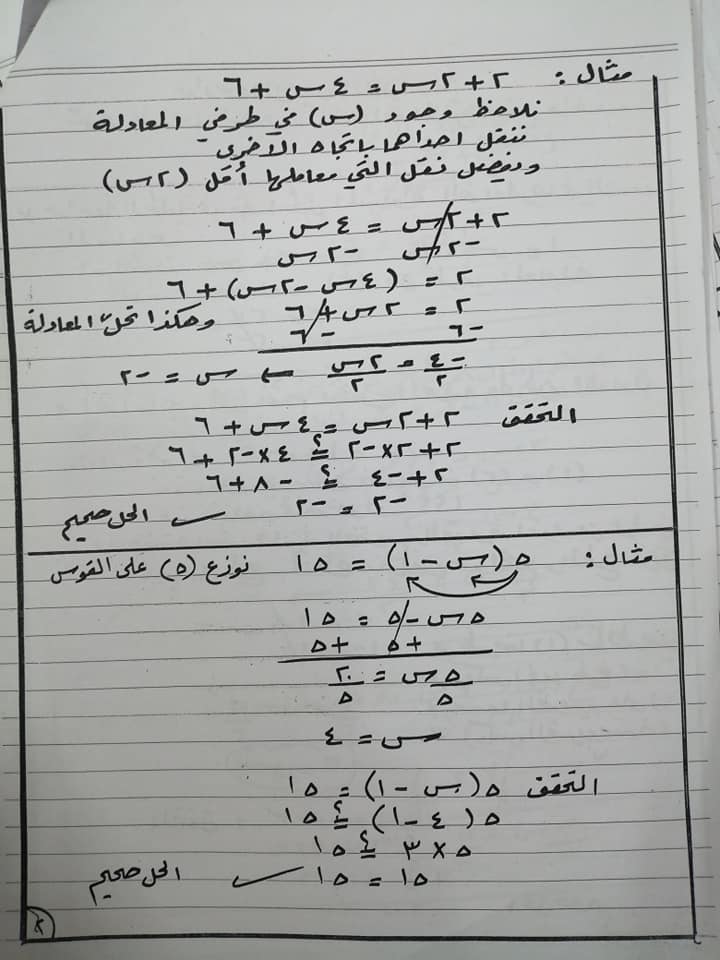 مثال : ٢+٢س = ٤س+٦
نلاحظ وجود (س) في طرفي المعادلة
ننقل احداهما باتجاه الأخرى
ونفضل نقل التي معاملها أقل (٢س)
٢+٢س = ٤س + ٦
-٢س -٢س
٢ = (٤س -٢س)+٦
٢ = ٢س+٦ وهكذا تحل المعادلة
-٦ -٦
-٤/٢ = ٢س/٢ ← س = -٢
التحقق ٢+٢س = ٤س+٦
٢+٢×-٢ ≟ ٤×-٢+٦
٢+-٤ ≟ -٨+٦
-٢ = -٢ ✓ الحل صحيح
مثال : ٥(س-١) = ١٥ نوزع (٥) على القوس
٥س-٥ = ١٥
+٥ +٥
٥س/٥ = ٢٠/٥
س = ٤
التحقق ٥(س-١) = ١٥
٥(٤-١) ≟ ١٥
٥×٣ ≟ ١٥
١٥ = ١٥ ✓ الحل صحيح